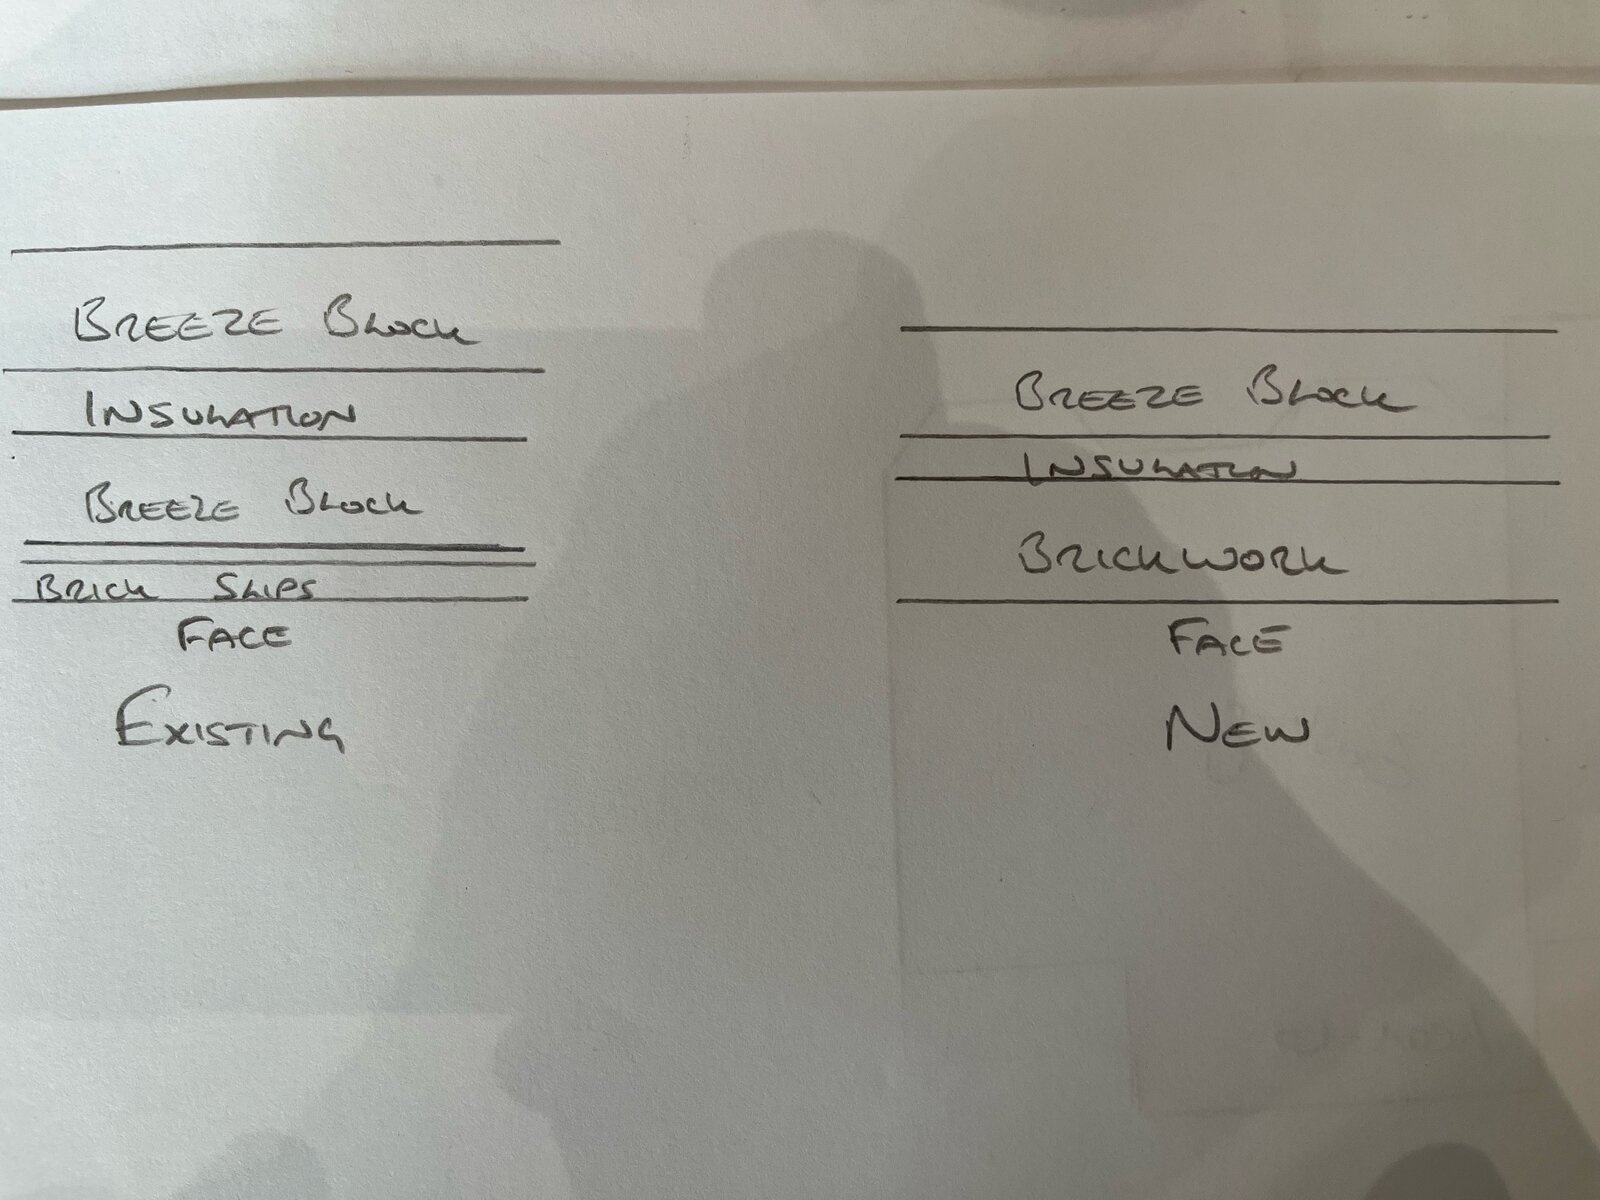 BREEZE BLOCK
INSULATION
BREEZE BLOCK
BRICK SLIPS
FACE
EXISTING
BREEZE BLOCK
INSULATION
BRICKWORK
FACE
NEW